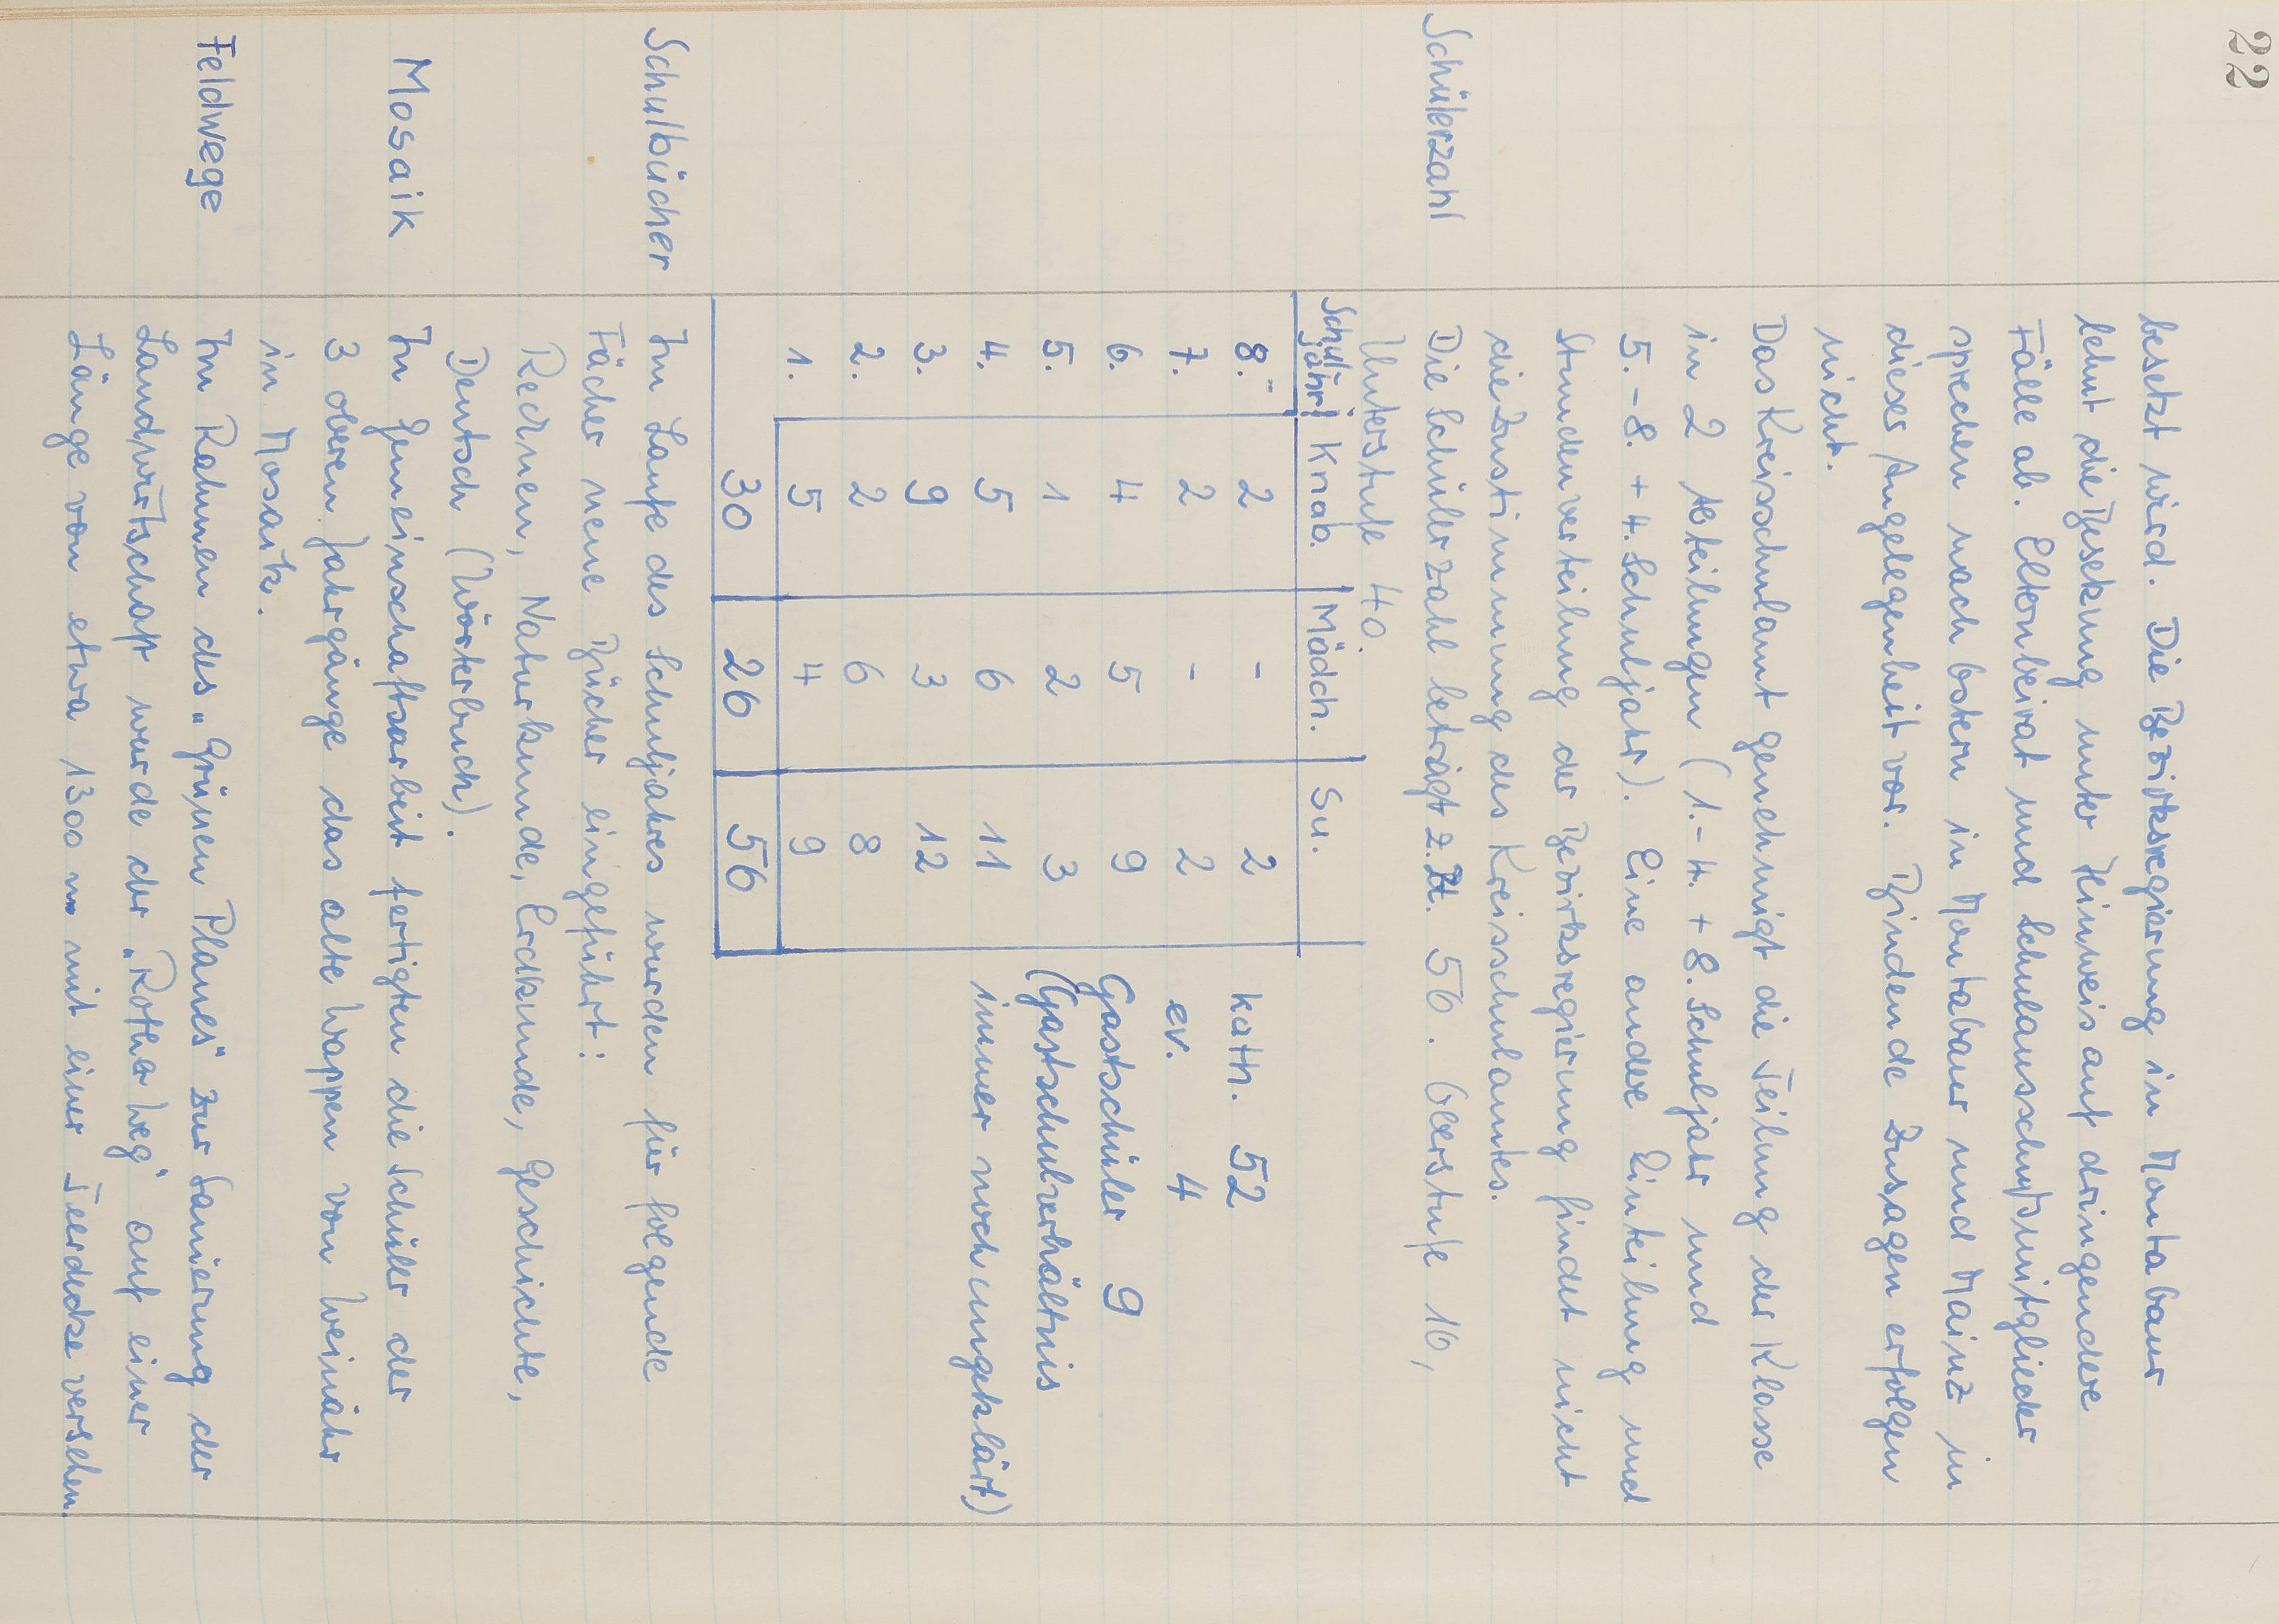 22
besetzt wird. Die Bezirksregierung in Montabaur
lehnt die Besetzung unter Hinweis auf dringendere
Fälle ab. Elternbeirat und Schulausschußmitglieder
sprechen nach Ostern in Montabaur und Mainz in
dieser Angelegenheit vor. Bindende Zusagen erfolgen
nicht.
Das Kreisschulamt genehmigt die Teilung der Klasse
in 2 Abteilungen (1.-4. + 8. Schuljahr und
5.-8. + 4. Schuljahr). Eine andere Einteilung und
Stundenverteilung der Bezirksregierung findet nicht
die Zustimmung des Kreisschulamtes.
Schülerzahl Die Schülerzahl beträgt z.Zt. 56. Oberstufe 16,
Unterstufe 40.
Schuljahr Knab. Mädch. Su.
8. 2 - 2 kath. 52
7. 2 - 2 ev. 4
6. 4 5 9 Gastschüler 9
5. 1 2 3 (Gastschulverhältnis
4. 5 6 11 immer noch ungeklärt)
3. 9 3 12
2. 2 6 8
1. 5 4 9
30 26 56
Schulbücher Im Laufe des Schuljahres wurden für folgende
Fächer neue Bücher eingeführt:
Rechnen, Naturkunde, Erdkunde, Geschichte,
Deutsch (Wörterbuch).
Mosaik In Gemeinschaftsarbeit fertigten die Schüler der
3 oberen Jahrgänge das alte Wappen von Weinähr
in Mosaik.
Feldwege Im Rahmen des „Grünen Planes" zur Sanierung der
Landwirtschaft wurde der „Rother Weg" auf einer
Länge von etwa 1300 m mit einer Teerdecke versehen.